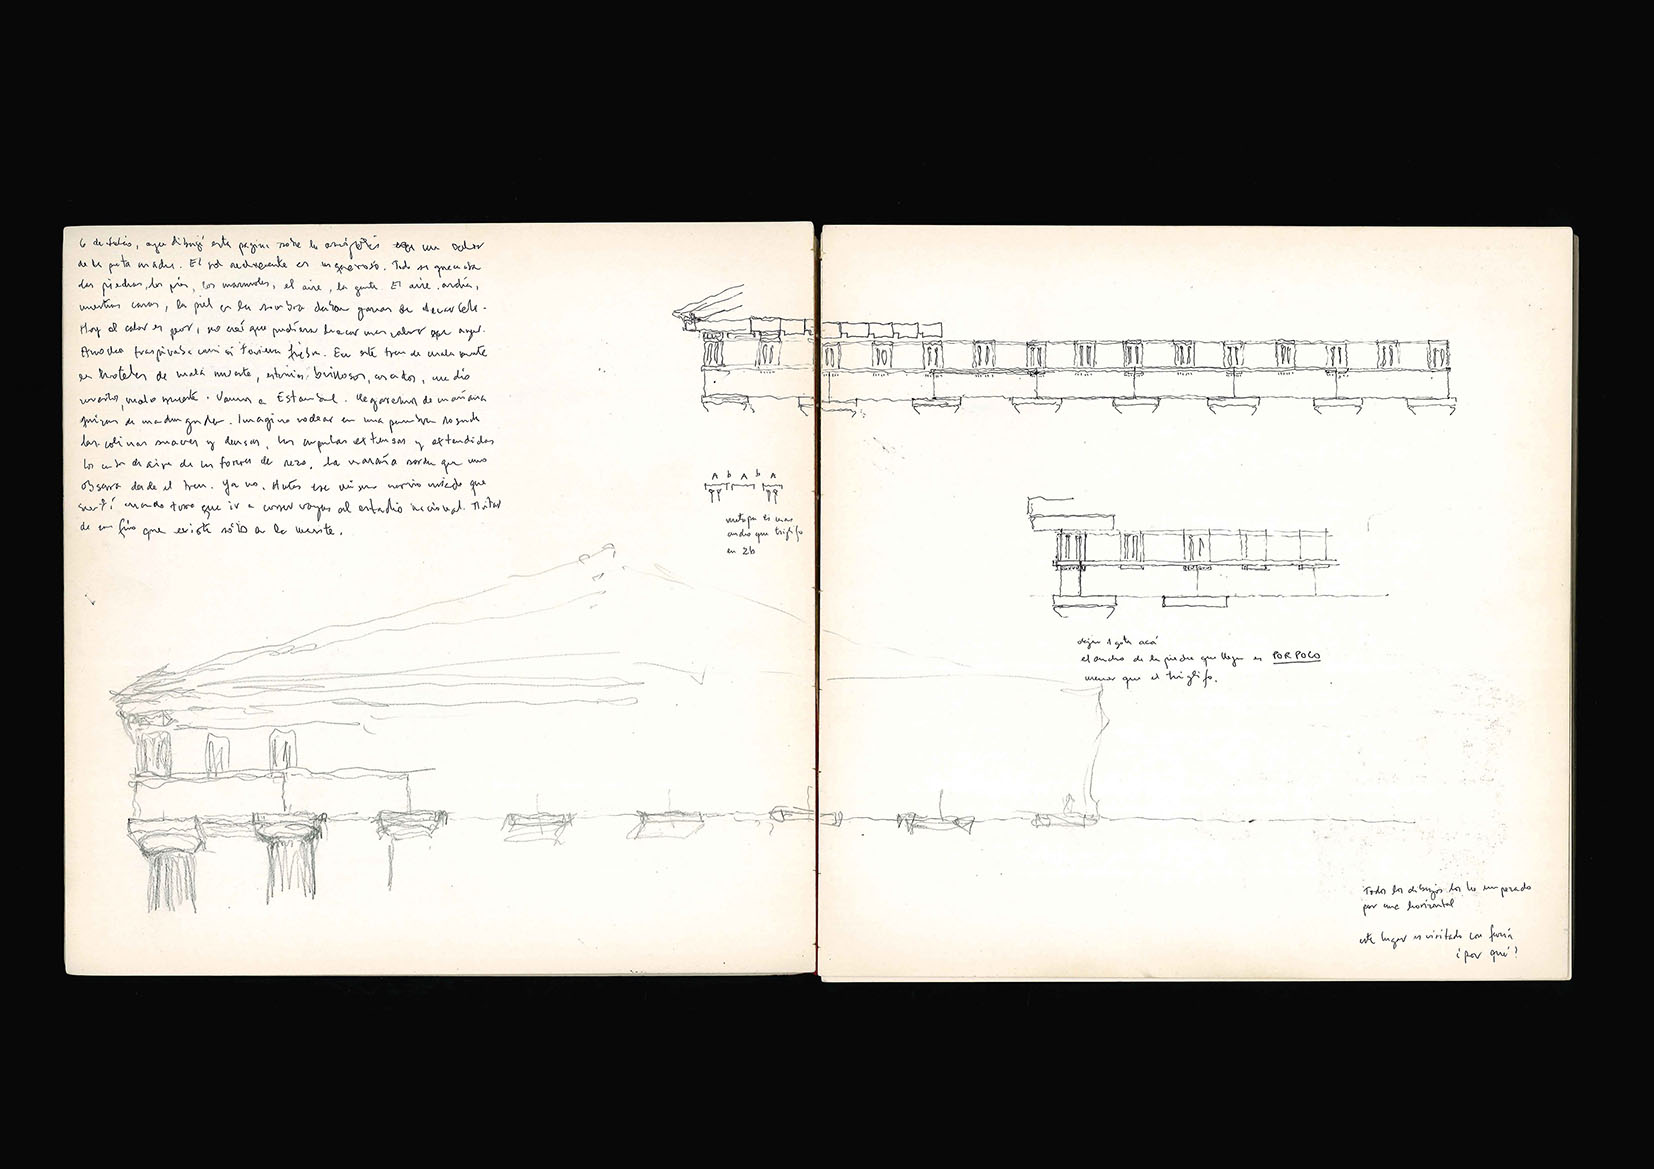 6 de Julio, ayer dibujé esta página sobre la acrópolis con un calor
de la puta madre. El sol realmente es ingeneroso. Todo se quemaba
las piedras, los pies, los marmoles, el aire, la gente. El aire ardía,
nuestras caras, la piel en la sombra daban ganas de
Hoy el calor es peor, no creí que pudiera hacer mas calor que ayer.
Anoche traspiraba como si tuviera fiebre. En este tren de mala muerte
en hoteles de mala muerte, estamos brillosos, medio
muertos, mala muerte. Vamos a Estambul. Llegaremos de mañana
quizas de madrugada. Imagino rodear en una penumbra
las colinas suaves y densas, las cupulas extensas y extendidas
los de aire de las torres de rezo, la maraña sorda que uno
observa desde el tren. Ya no. Antes ese mismo nervio miedo que
sentí cuando tuve que ir a correr vayas al estadio nacional.
de un frio que existe sólo a la muerte.
A b A b A
metopa es mas
ancho que triglifo
en 2b
dejar 1 gota acá
el ancho de la piedra que llega es POR POCO
menor que el triglifo.
Todos los dibujos los he empezado
por una horizontal
este lugar es visitado con furia
¿por qué?